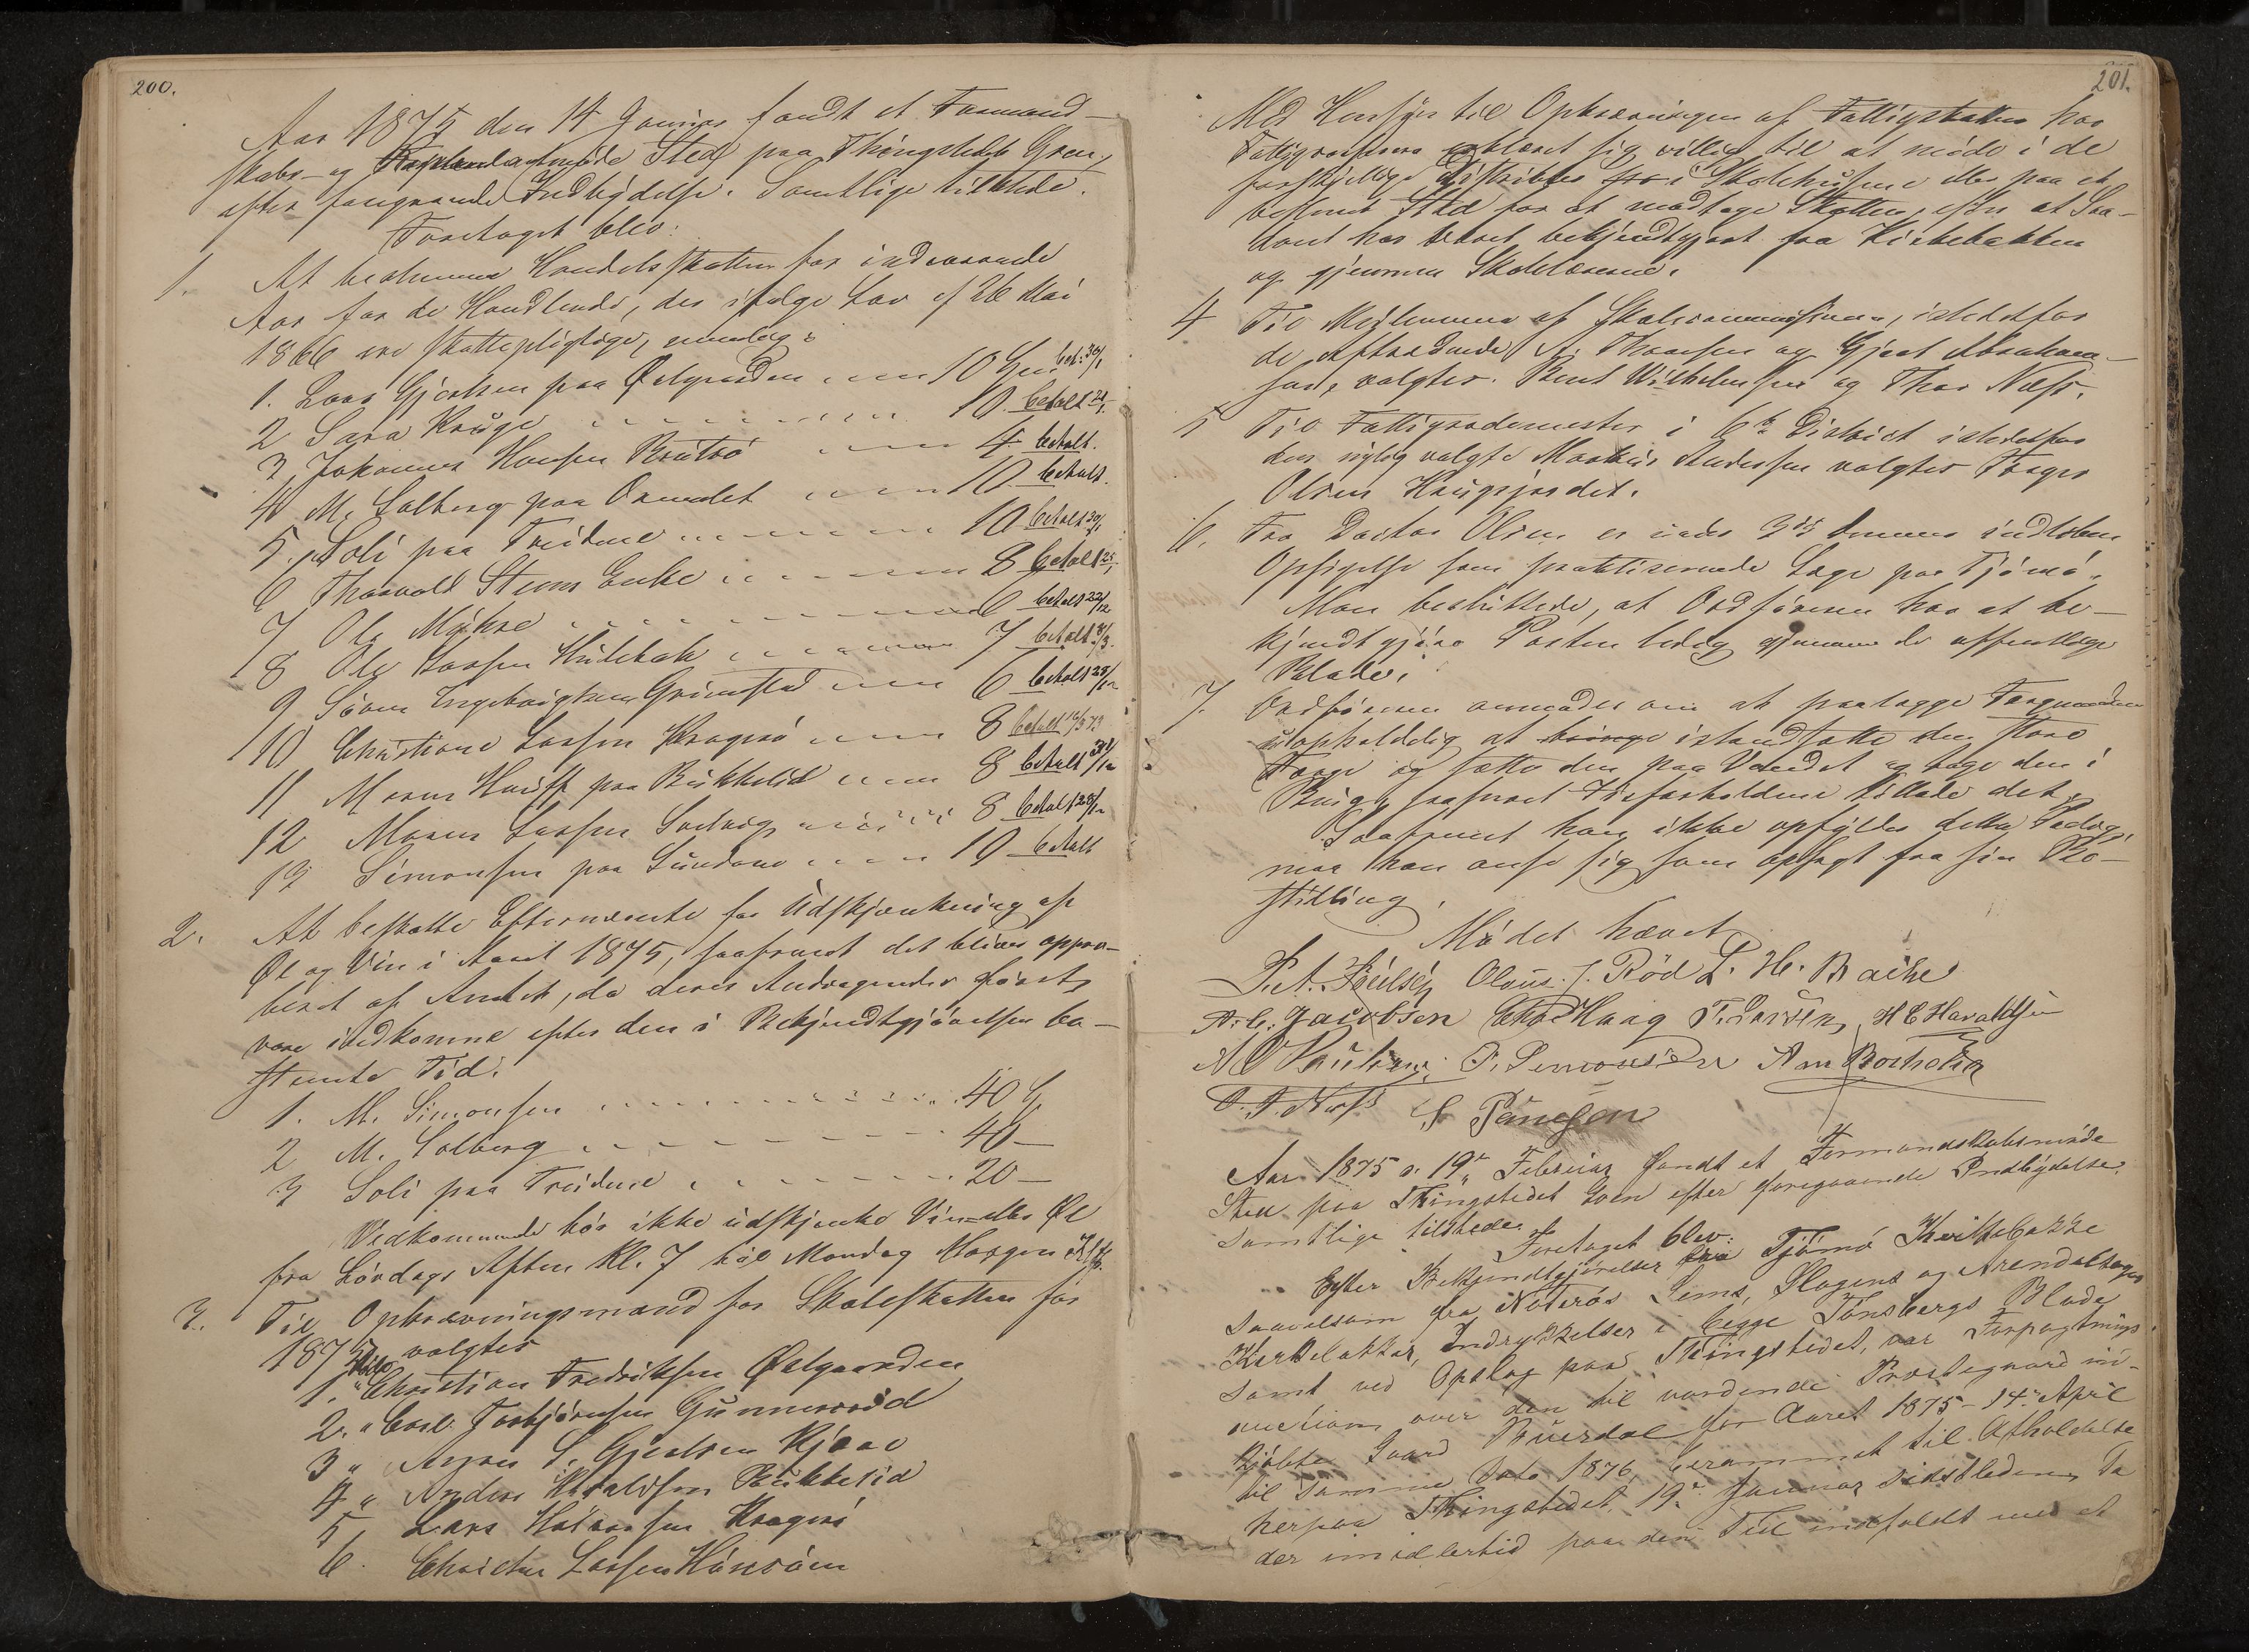 200.
Aar 1875 den 14 Januar fandt et Formand-
skabs- og Repræsentantmøde Sted paa Thingstedet Gren,
efter foregaaende Indbydelse. Samtlige tilstede.
Foretaget blev:
1. At bestemme Handelsskatten for indeværende
Aar for de Handlende, der ifølge Lov af 26 Mai
1866 ere skattepligtige, nemlig:
1. Lars Gjertsen paa Ølgaarden 10 bet: 30/1
2 Sara Kruge 10 betalt 21/1
3 Johannes Hansen 4 betalt.
4 M. Solberg paa Ormelet 10 betalt.
5. Soli paa Treidene 10 betalt 30/1
6 Thorvald Stens Enke 8 betalt 25/1
7 Ole Mågerø 6 betalt 22/12
8 Ole Larsen Hulebak 7 betalt 31/3.
9 Søren Ingebrigtsen Grimstad 6 betalt 28/12
10 Christiane Larsen Kragerø 8 betalt
11 Maren paa Bukkelid 8 betalt 31/12
12 Maren Larsen Solvig 8 betalt 28/12
13 Simonsen paa Sundene 10 betalt
2. At beskatte Efternævnte for Udskjænkning af
Øl og Vin i Aaret 1875, saafremt det bliver appro-
beret af Amtet, da deres Andragender først
vare indkomne efter den i Bekjendtgjørelsen be-
stemte Tid.
1. M. Simonsen 40
2 M. Solberg 40 -
3 Soli paa Treidene 20 -
Vedkommende bør ikke udskjænke Vin eller Øl
fra Løvdags Aften Kl. 7 til Mandag Morgen
3. Til Opkrævningsmænd for Skoleskatten for
1875 valgtes
1. Christian Fredriksen Ølgaarden
2. " Carl Torbjørnsen Gunnerød
3 " Anders S. Gjertsen Kjære
4 " Anders Haraldsen Bukkelid
5 Lars Halvorsen Kragerø
6. Christen Larsen
201.
Med Hensyn til Opkrævningen af Fattigskatten har
Fattigkassereren erklæret sig villig til at møde i de
forskjellige Distrikter i Skolehusene eller paa et
bestemt Sted for at modtage Skatten, efter at Saa-
dant har været bekjendtgjort fra Kirkebakken
og gjennem Skolelærerne.
4 Til Medlemmer af Skolecommissionen, istedetfor
de Aftrædende A. Thoresen og Gjert Abraham-
sen, valgtes: Bent Wilhelmsen og Thor Næss.
5 Til Fattigrodemester i 6te District istedetfor
den nylig valgte Markus Andersen valgtes Trægs
Olsen Haugsjordet.
6. Fra Doctor Olsen er under 3de dennes indløben
Opsigelse som praktiserende Læge paa Tjømø.
Man besluttede, at Ordføreren har at be-
kjendtgjøre Posten ledig gjennem de offentlige
Blade.
7. Ordføreren anmodes om at paalægge Færgemanden
uopholdelig at istandsætte den store
Færge og sætte den paa Vandet og tage den i
Brug, saasnart Isforholdene tillade det.
Saafremt han ikke opfylder dette Paalæg,
maa han anse sig som opsagt fra sin Be-
stilling.
Mødet hævet
Olaus J. Rød L. H. Bache
A. C. Jacobsen Chr Haag T. Larsen H E Haraldsen
N O Paulsen P. Simonsen
O. T. Næss S Pauesen
Aar 1875 d. 19de Februar fandt et Formandskabsmøde
Sted paa Thingstedet Gren efter foregaaende Indbydelse.
Samtlige tilstede.
Foretaget blev:
Efter Bekjendtgjørelser fra Tjømø Kirkebakke
saavelsom fra Nøterøs Sems, Slagens og Arendalsoges
Kirkebakker, Indrykkelser i begge Tønsbergs Blade
samt ved Opslag paa Thingstedet, var Forpagtnings-
auction over den til vordende Præstegaard ind-
kjøbte Gaard Buerdal for Aaret 1875 - 14de April
til samme Dato 1876, berammet til Afholdelse
herpaa Thingstedet 19de Januar sidstleden. Da
der imidlertid paa den Tid indfaldt med et